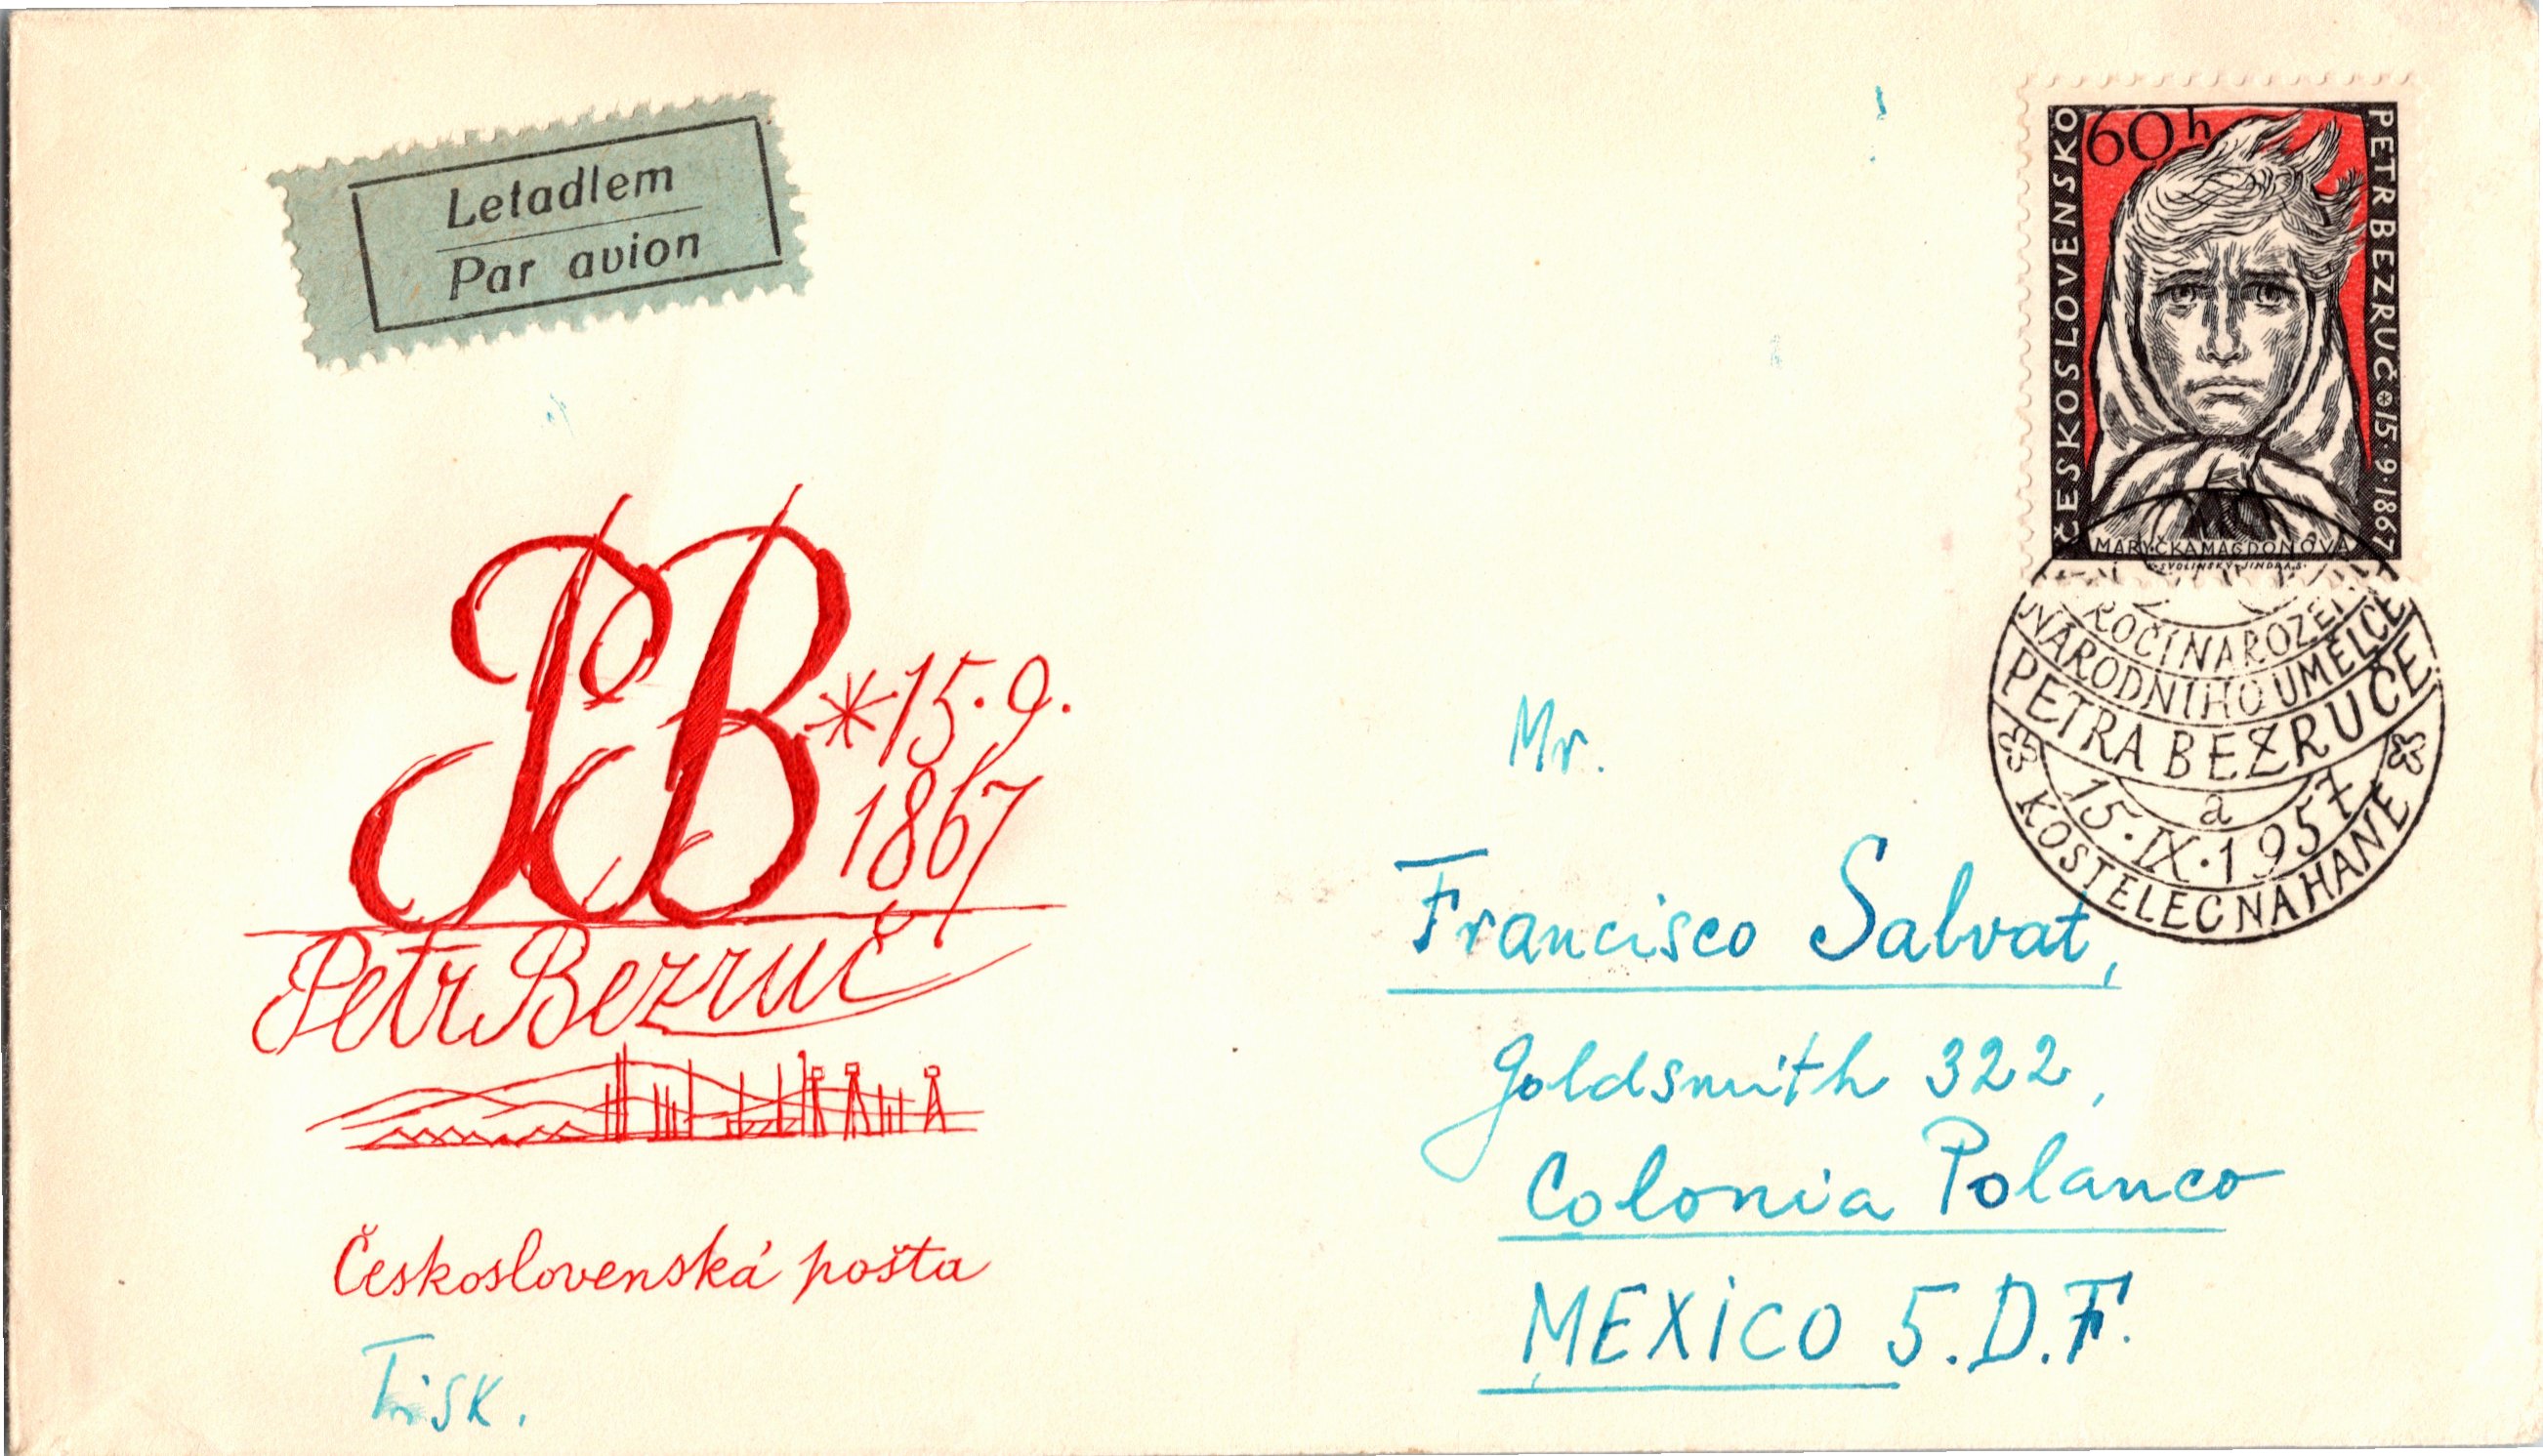 Letadlem
Par avion
60 h
ČESKOSLOVENSKO
PETR BEZRUČ * 15.9.1867
MARYČKA MAGDONOVA
K. SVOLINSKÝ - JINDRA.S.
NÁRODNÍHO UMĚLCE
PETRA BEZRUČE
a
15.IX.1957
KOSTELEC NA HANÉ
PB * 15.9.
1867
Petr Bezruč
Československá pošta
Tisk.
Mr.
Francisco Salvat,
Goldsmith 322,
Colonia Polanco
MEXICO 5.D.F.